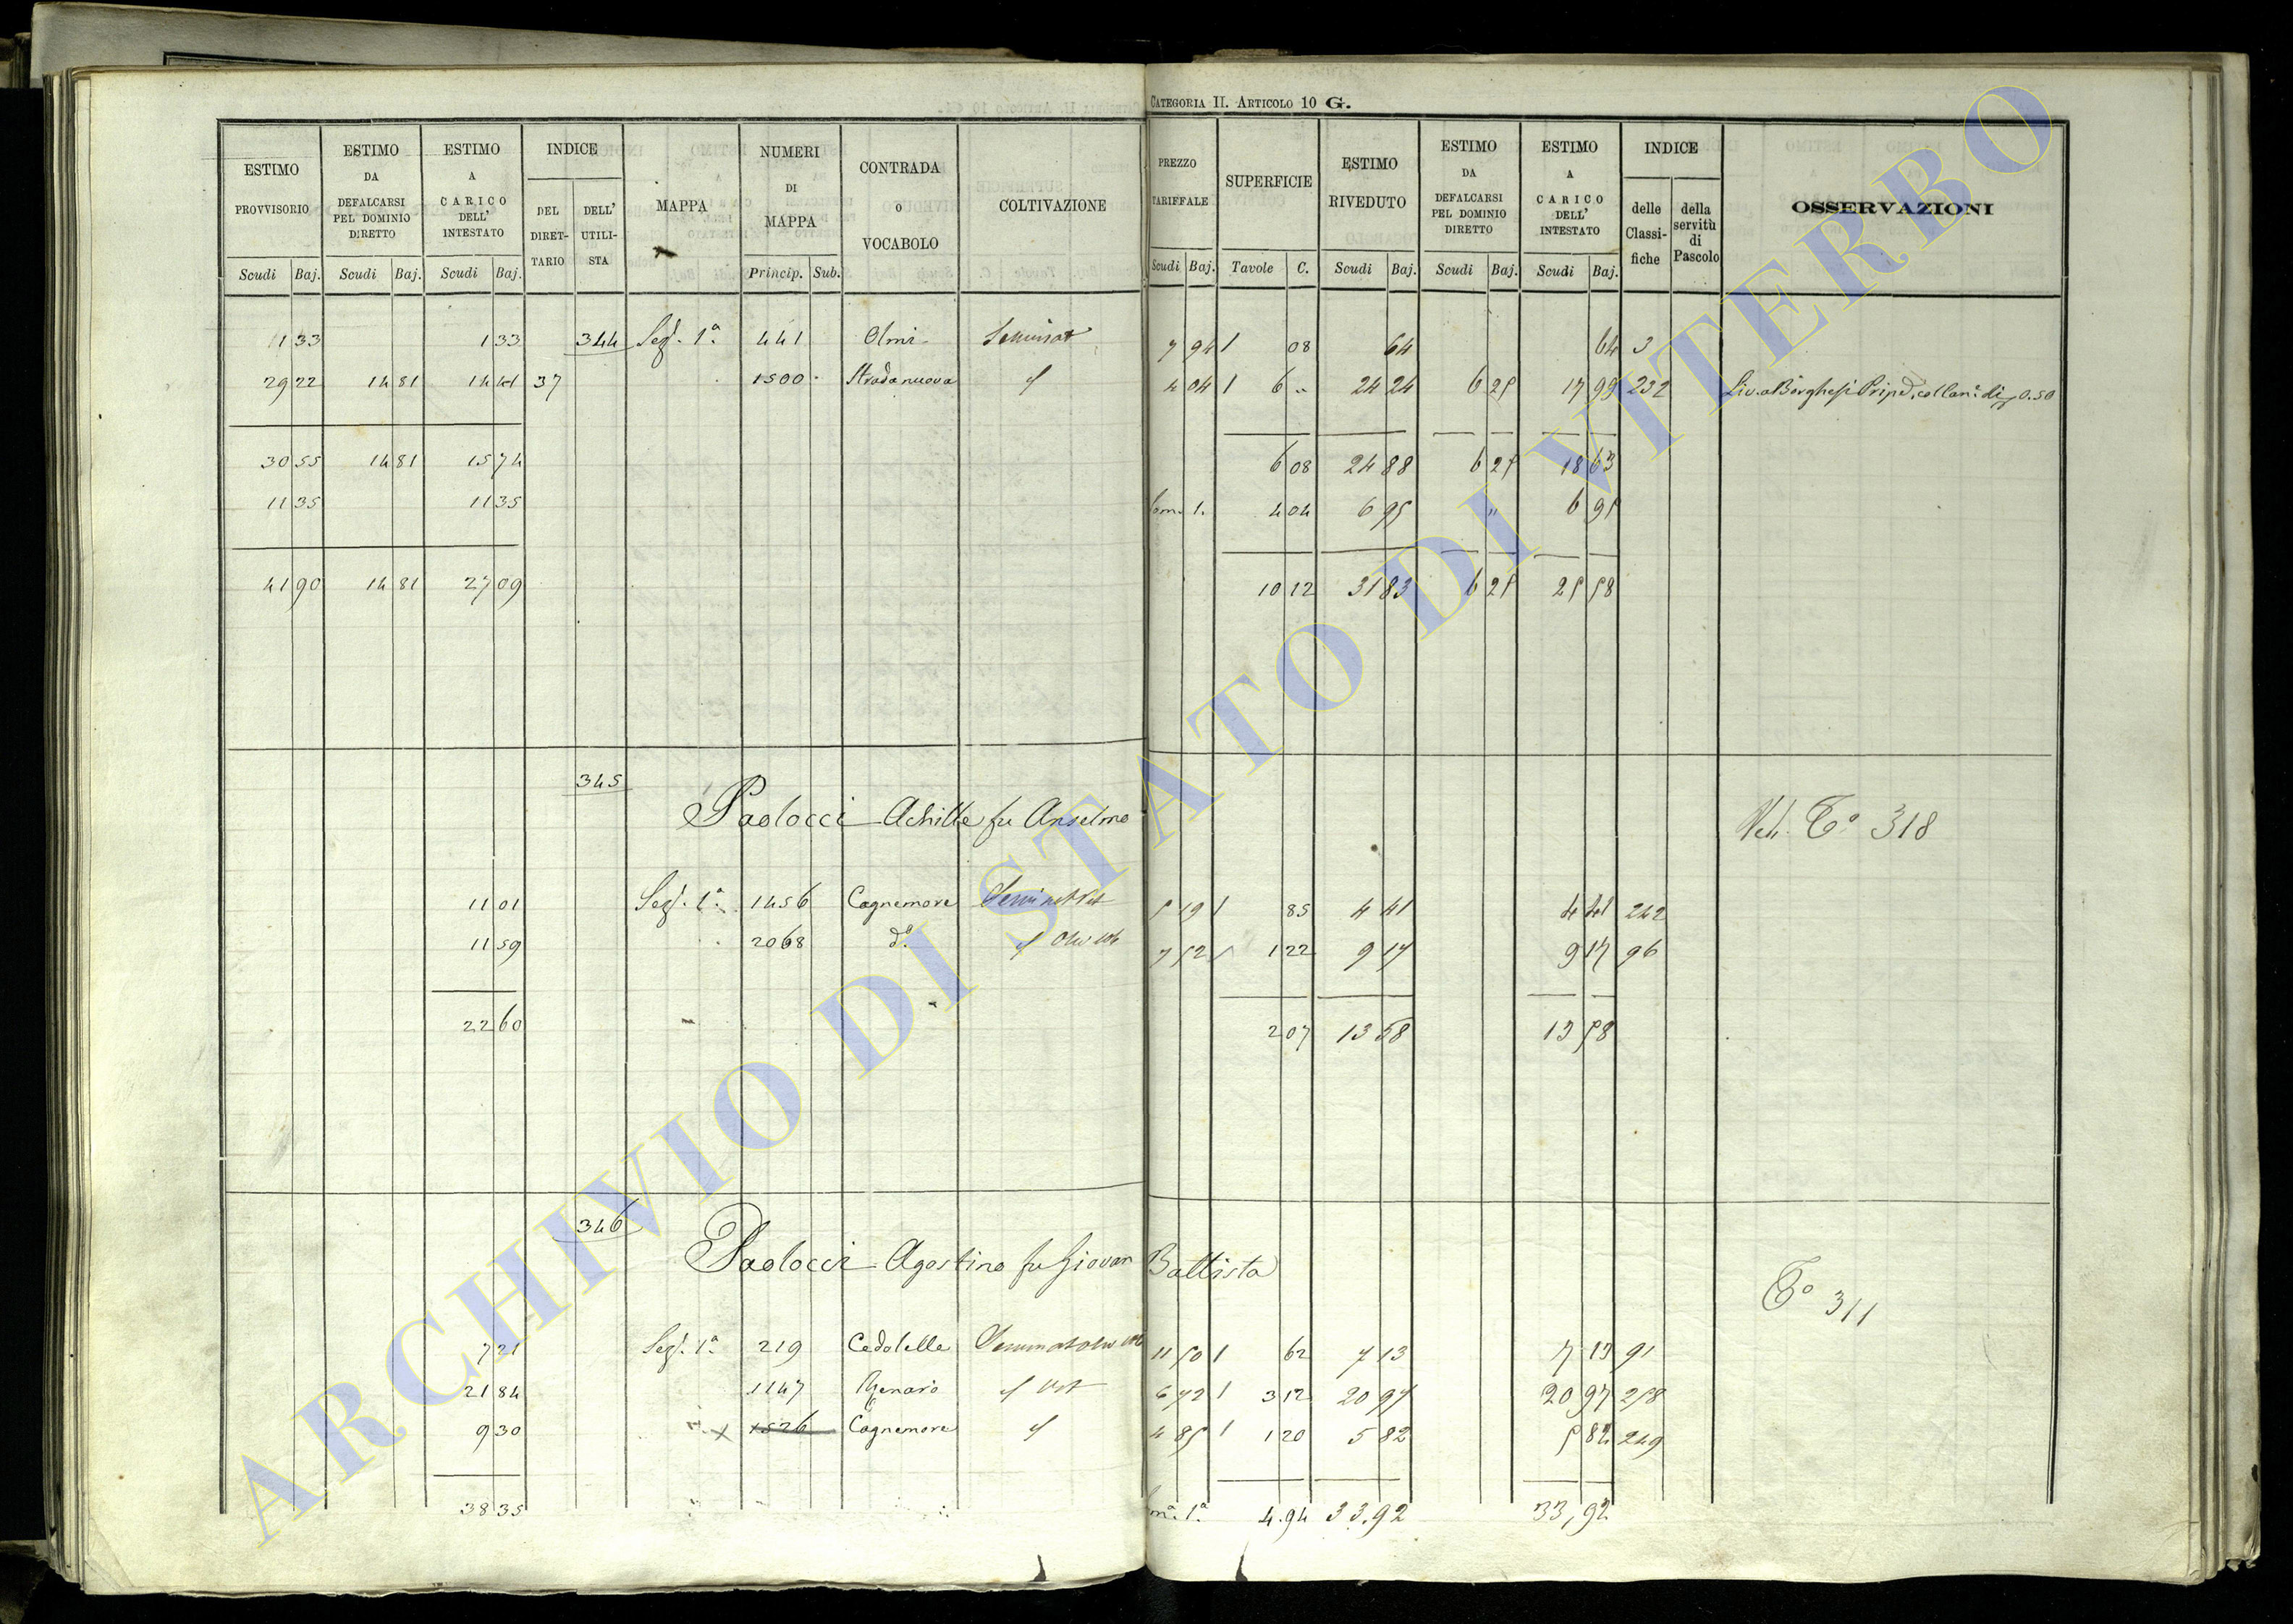 CATEGORIA II. ARTICOLO 10 G.
ESTIMO PROVVISORIO
ESTIMO DA DEFALCARSI PEL DOMINIO DIRETTO
ESTIMO A CARICO DELL' INTESTATO
INDICE
DEL DIRET-TARIO
DELL' UTILI-STA
MAPPA
NUMERI DI MAPPA
CONTRADA O VOCABOLO
COLTIVAZIONE
PREZZO TARIFFALE
SUPERFICIE
ESTIMO RIVEDUTO
ESTIMO DA DEFALCARSI PEL DOMINIO DIRETTO
ESTIMO A CARICO DELL' INTESTATO
INDICE
delle Classi-fiche
della servitù di Pascolo
OSSERVAZIONI
Scudi Baj. Scudi Baj. Scudi Baj. Princip. Sub. Scudi Baj. Tavole C. Scudi Baj. Scudi Baj. Scudi Baj.
1 33 1 33 344 Sez. 1ª 441 Olmi 7 94 1 08 64 64 3
29 22 14 81 14 41 37 1500 Stradanuova 4 04 1 6 24 24 6 25 17 99 232
30 55 14 81 15 74 6 08 24 88 6 25 18 63
11 35 11 35 4 04 6 95 " 6 95
41 90 14 81 27 09 10 12 31 83 6 25 25 58
345
Paolocci Achille fu Anselmo
Tº 318
11 01 Sez. 1ª 1456 Cagnemore 5 19 1 85 4 41 4 41 242
11 59 2068 dº 7 52 1 22 9 17 9 17 96
22 60 2 07 13 58 13 58
346
Paolocci Agostino fu Giovan Battista
Tº 311
7 21 Sez. 1ª 219 11 50 1 62 7 13 7 13 91
21 84 1147 6 72 1 3 12 20 97 20 97 258
9 30 x 1526 Cagnemore 4 85 1 1 20 5 82 5 82 249
38 35 4.94 33.92 33,92
ARCHIVIO DI STATO DI VITERBO